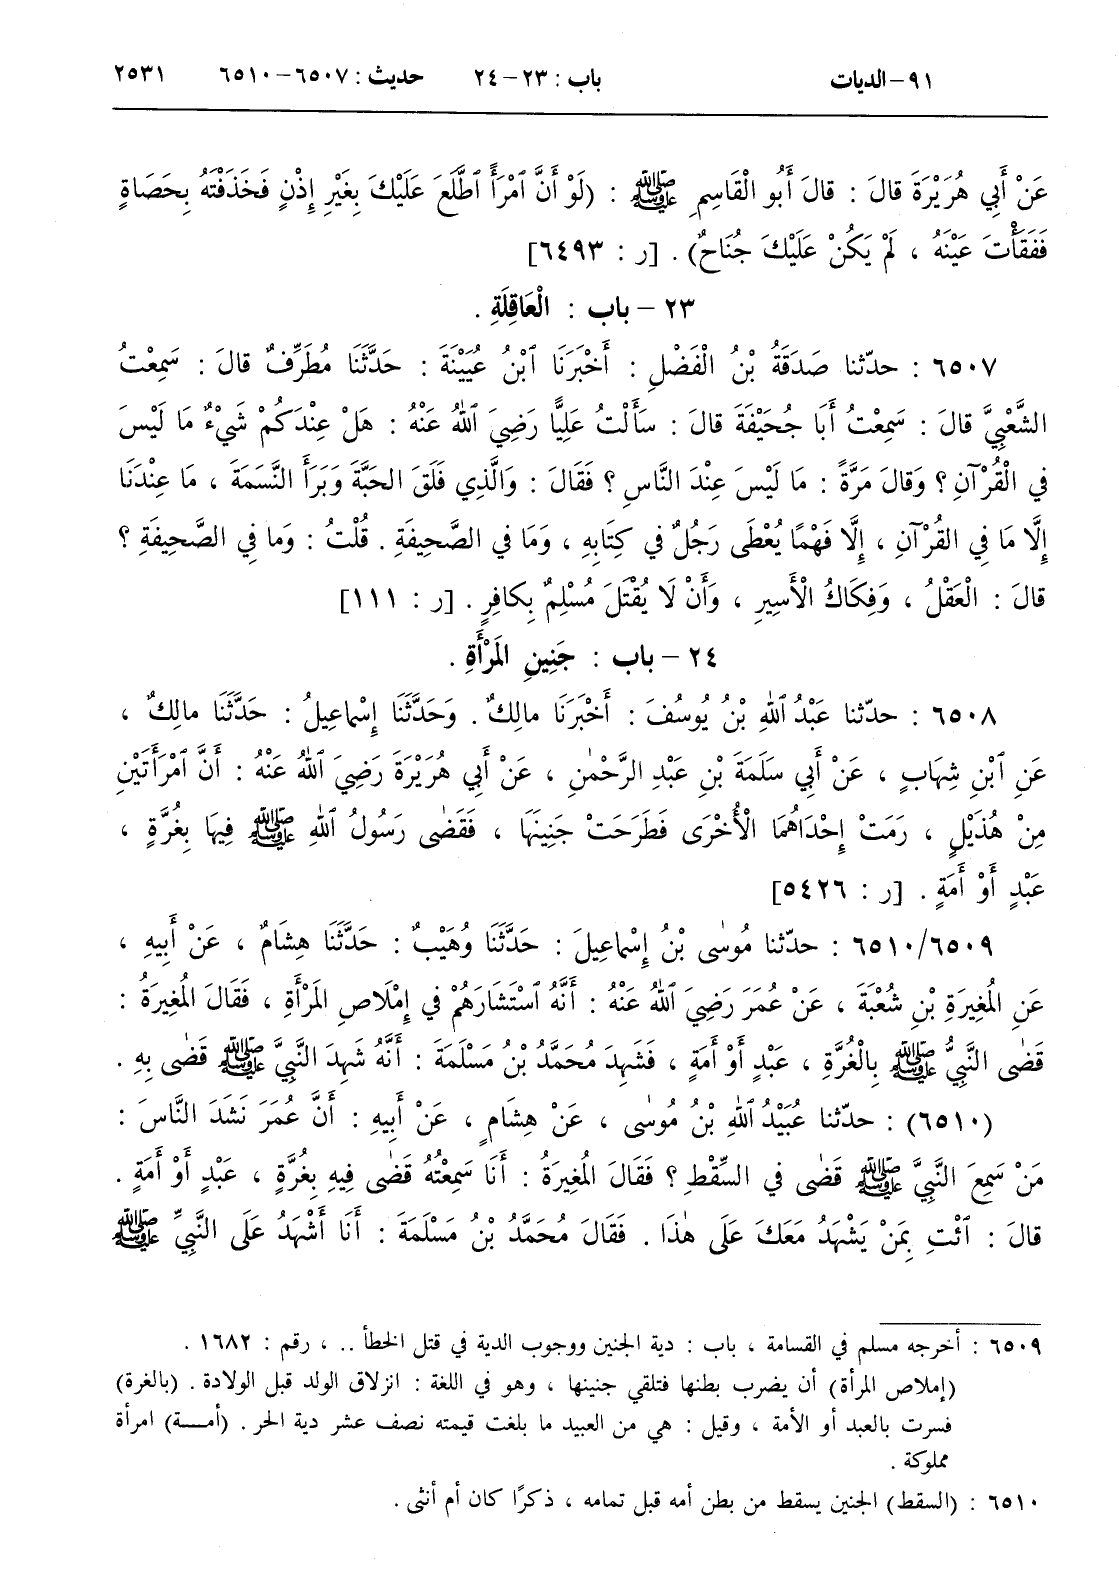 ٩١ – الديات باب : ٢٣ – ٢٤ حديث : ٦٥٠٧ – ٦٥١٠ ٢٥٣١
عَنْ أَبِي هُرَيْرَةَ قالَ : قالَ أَبُو الْقَاسِمِ ﷺ : (لَوْ أَنَّ ٱمْرَأً ٱطَّلَعَ عَلَيْكَ بِغَيْرِ إِذْنٍ فَخَذَفْتَهُ بِحَصَاةٍ
فَفَقَأْتَ عَيْنَهُ ، لَمْ يَكُنْ عَلَيْكَ جُنَاحٌ) . [ر : ٦٤٩٣]
٢٣ – باب : الْعَاقِلَةِ .
٦٥٠٧ : حدّثنا صَدَقَةُ بْنُ الْفَضْلِ : أَخْبَرَنَا ٱبْنُ عُيَيْنَةَ : حَدَّثَنَا مُطَرِّفٌ قالَ : سَمِعْتُ
الشَّعْبِيَّ قالَ : سَمِعْتُ أَبَا جُحَيْفَةَ قالَ : سَأَلْتُ عَلِيًّا رَضِيَ ٱللهُ عَنْهُ : هَلْ عِنْدَكُمْ شَيْءٌ مَا لَيْسَ
في الْقُرْآنِ ؟ وَقالَ مَرَّةً : مَا لَيْسَ عِنْدَ النَّاسِ ؟ فَقَالَ : وَالَّذِي فَلَقَ الحَبَّةَ وَبَرَأَ النَّسَمَةَ ، مَا عِنْدَنَا
إِلَّا مَا فِي القُرْآنِ ، إِلَّا فَهْمًا يُعْطَى رَجُلٌ فِي كِتَابِهِ ، وَمَا فِي الصَّحِيفَةِ . قُلْتُ : وَما فِي الصَّحِيفَةِ ؟
قالَ : الْعَقْلُ ، وَفِكَاكُ الْأَسِيرِ ، وَأَنْ لَا يُقْتَلَ مُسْلِمٌ بِكافِرٍ . [ر : ١١١]
٢٤ – باب : جَنِينِ المَرْأَةِ .
٦٥٠٨ : حدّثنا عَبْدُ ٱللهِ بْنُ يُوسُفَ : أَخْبَرَنَا مالِكٌ . وَحَدَّثَنَا إِسْماعِيلُ : حَدَّثَنَا مالِكٌ ،
عَنِ ٱبْنِ شِهَابٍ ، عَنْ أَبِي سَلَمَةَ بْنِ عَبْدِ الرَّحْمٰنِ ، عَنْ أَبِي هُرَيْرَةَ رَضِيَ ٱللهُ عَنْهُ : أَنَّ ٱمْرَأَتَيْنِ
مِنْ هُذَيْلٍ ، رَمَتْ إِحْدَاهُمَا الْأُخْرَى فَطَرَحَتْ جَنِينَهَا ، فَقَضٰى رَسُولُ ٱللهِ ﷺ فِيهَا بِغُرَّةٍ ،
عَبْدٍ أَوْ أَمَةٍ . [ر : ٥٤٢٦]
٦٥١٠/٦٥٠٩ : حدّثنا مُوسٰى بْنُ إِسْماعِيلَ : حَدَّثَنَا وُهَيْبٌ : حَدَّثَنَا هِشَامٌ ، عَنْ أَبِيهِ ،
عَنِ المُغِيرَةِ بْنِ شُعْبَةَ ، عَنْ عُمَرَ رَضِيَ ٱللهُ عَنْهُ : أَنَّهُ ٱسْتَشَارَهُمْ فِي إِمْلَاصِ المَرْأَةِ ، فَقَالَ المُغِيرَةُ :
قَضٰى النَّبِيُّ ﷺ بِالْغُرَّةِ ، عَبْدٍ أَوْ أَمَةٍ ، فَشَهِدَ مُحَمَّدُ بْنُ مَسْلَمَةَ : أَنَّهُ شَهِدَ النَّبِيَّ ﷺ قَضٰى بِهِ .
(٦٥١٠) : حدّثنا عُبَيْدُ ٱللهِ بْنُ مُوسٰى ، عَنْ هِشَامٍ ، عَنْ أَبِيهِ : أَنَّ عُمَرَ نَشَدَ النَّاسَ :
مَنْ سَمِعَ النَّبِيَّ ﷺ قَضٰى فِي السِّقْطِ ؟ فَقَالَ المُغِيرَةُ : أَنَا سَمِعْتُهُ قَضٰى فِيهِ بِغُرَّةٍ ، عَبْدٍ أَوْ أَمَةٍ .
قالَ : ٱئْتِ بِمَنْ يَشْهَدُ مَعَكَ عَلَى هٰذَا . فَقَالَ مُحَمَّدُ بْنُ مَسْلَمَةَ : أَنَا أَشْهَدُ عَلَى النَّبِيِّ ﷺ
٦٥٠٩ : أخرجه مسلم في القسامة ، باب : دية الجنين ووجوب الدية في قتل الخطأ .. ، رقم : ١٦٨٢ .
(إملاص المرأة) أن يضرب بطنها فتلقي جنينها ، وهو في اللغة : انزلاق الولد قبل الولادة . (بالغرة)
فسرت بالعبد أو الأمة ، وقيل : هي من العبيد ما بلغت قيمته نصف عشر دية الحر . (أمــة) امرأة
مملوكة .
٦٥١٠ : (السقط) الجنين يسقط من بطن أمه قبل تمامه ، ذكرًا كان أم أنثى .